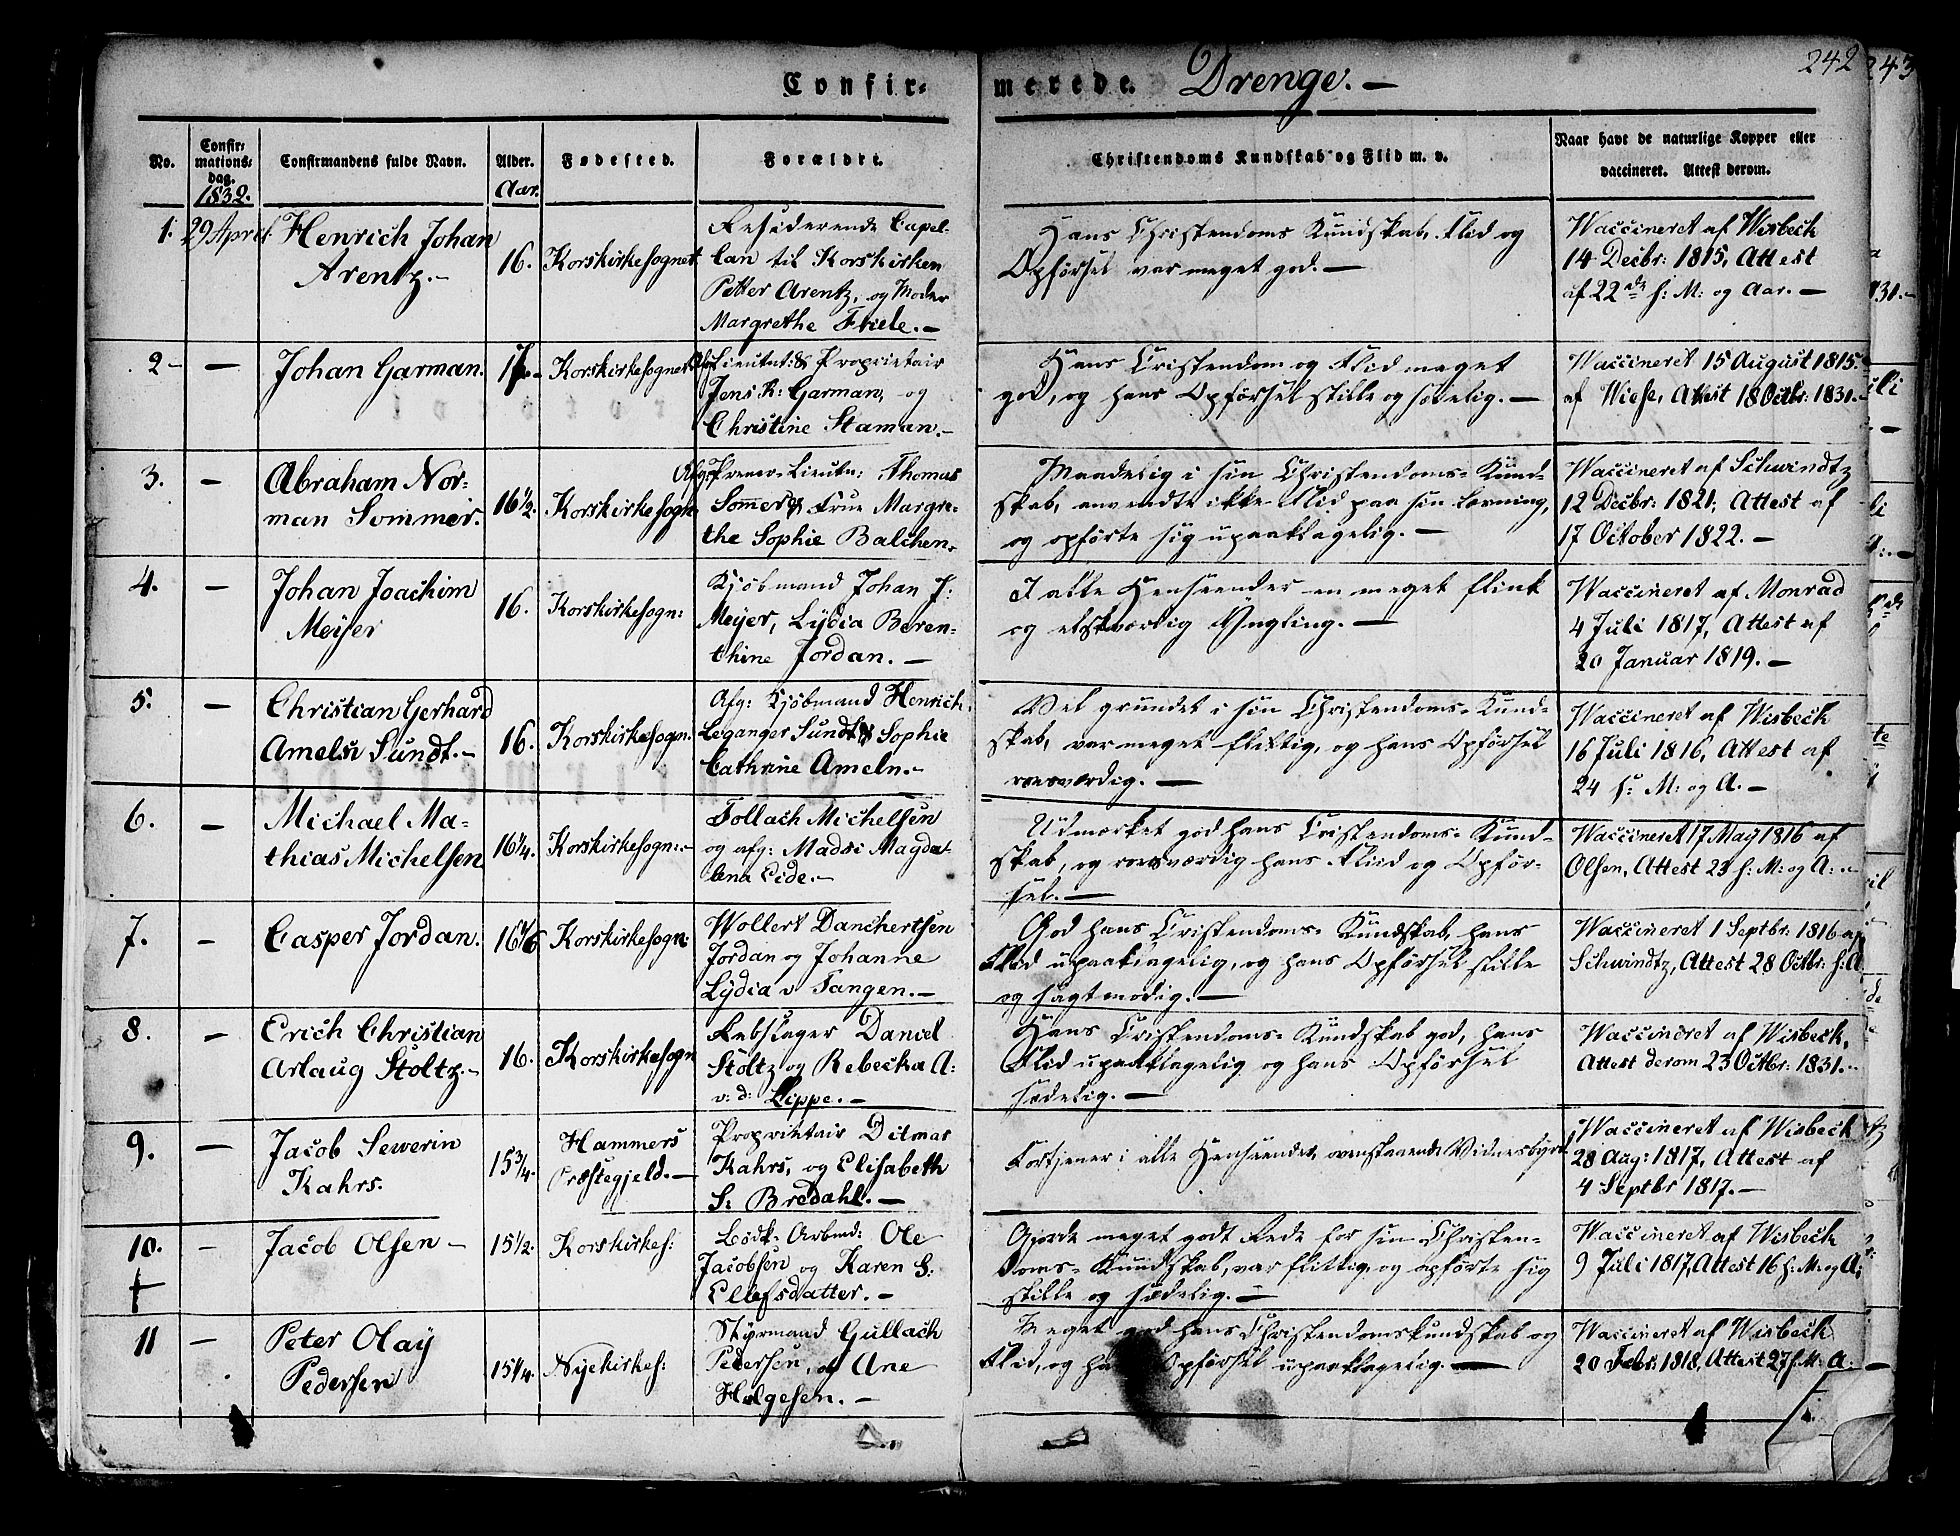 242
243
Confir- merede. Drenge. —
No.
Confir-
mations-
dag.
1832.
Confirmandens fulde Navn.
Alder.
Aar.
Fødested.
Forældre.
Christendoms Kundskab og Flid m. v.
Naar havt de naturlige Kopper eller
vaccineret. Attest derom.
1. 29 April.
Henrich Johan
Arentz. —
16.
Korskirkesognet
Residerende Capel-
lan til Korskirken
Petter Arentz, og Moder
Margrethe Friele. —
Hans Christendoms Kundskab, Flid og
Opførsel var meget god. —
Vaccineret af Wisbech
14 Decbr: 1815, Attest
af 22de s: M: og Aar. —
2 — —
Johan Garman.
17. —
Korskirkesognet
Lieutnt: & Proprietair
Jens R: Garman, og
Christine Staman. —
Hans Cristendom og Flid meget
god, og hans Opførsel stille og sædelig. —
Vaccineret 15 August 1815.
af Wiese, Attest 18 Octbr: 1831. —
3. —
Abraham Nor-
man Sommer.
16 1/2.
Korskirkesogn
Afg: Premer-Lieutn: Thomas
Sommer & Frue Margre-
the Sophie Balchen.
Maadelig i sin Christendoms-Kund-
skab, anvendte ikke Flid paa sin Læsning,
og opførte sig upaaklagelig. —
Vaccineret af Schwindtz
12 Decbr: 1821, Attest af
17 October 1822. —
4. —
Johan Joachim
Meyer
16.
Korskirkesogn:
Kjøbmand Johan J:
Meyer, Lydia Beren-
thine Jordan. —
I alle Henseender en meget flink
og elskværdig Yngling. —
Vaccineret af Monrad
4 Juli 1817, Attest af
20 Januar 1819. —
5. —
Christian Gerhard
Ameln Sundt. —
16.
Korskirkesogn:
Afg: Kjøbmand Henrich
Leganger Sundt & Sophie
Cathrine Ameln. —
Vel grundet i sin Christendoms-Kund-
skab, var meget flittig, og hans Opførsel
roesværdig. —
Vaccineret af Wisbech
16 Juli 1816, Attest af
24 s: M: og A. —
6. —
Michael Ma-
thias Michelsen
16 1/4.
Korskirkesogn: —
Follach Michelsen
og afg: Madsi Magda-
lena Eide. —
Udmærket god hans Cristendoms-Kund-
skab, og roesværdig hans Fliid og Opfør-
sel. —
Vaccineret 17 May 1816 af
Olsen, Attest 23 s: M: og A: —
7. —
Casper Jordan.
16 1/6
Korskirkesogn:
Wollert Danchertsen
Jordan og Johanne
Lydia v Tangen. —
God hans Cristendoms-Kundskab, hans
Flid upaaklagelig, og hans Opførsel stille
og sagtmodig. —
Vaccineret 1 Septbr: 1816 af
Schwindtz, Attest 28 Octbr: s: A
8. —
Erich Christian
Arlaug Stoltz. —
16.
Korskirkesogn
Rebslager Daniel
Stoltz og Rebecka A:
v: d: Lippe. —
Hans Cristendoms-Kundskab god, hans
Flid upaaklagelig og hans Opførsel
sædelig. —
Vaccineret af Wisbech,
Attest derom 23 Octbr: 1831. —
9. —
Jacob Sewerin
Kahrs.
15 3/4.
Hammers
Præstegjeld. —
Proprietair Ditmar
Kahrs, og Elisabeth
S: Bredahl. —
Fortjener i alle Henseender ovenstaaende Vidnesbyrd
Vaccineret af Wisbech
28 Aug: 1817, Attest af
4 Septbr 1817. —
10. —
Jacob Olsen —
15 1/2.
Korskirkes:
Bødk: Arbmd: Ole
Jacobsen og Karen S:
Ellefsdatter. —
Gjorde meget godt Rede for sin Christen-
doms-Kundskab, var flittig og opførte sig
stille og sædelig. —
Vaccineret af Wisbech
9 Juli 1817, Attest 16 s: M: og A:
11 —
Peter Olay
Pedersen
15 1/4.
Nyekirkes:
Styrmand Gullach
Pedersen, og Ane
Helgesen. —
Meget god hans Christendomskundskab og
Flid, og hans Opførsel upaaklagelig. —
Vaccineret af Wisbech
20 Febr: 1818, Attest 27 s: M: A: